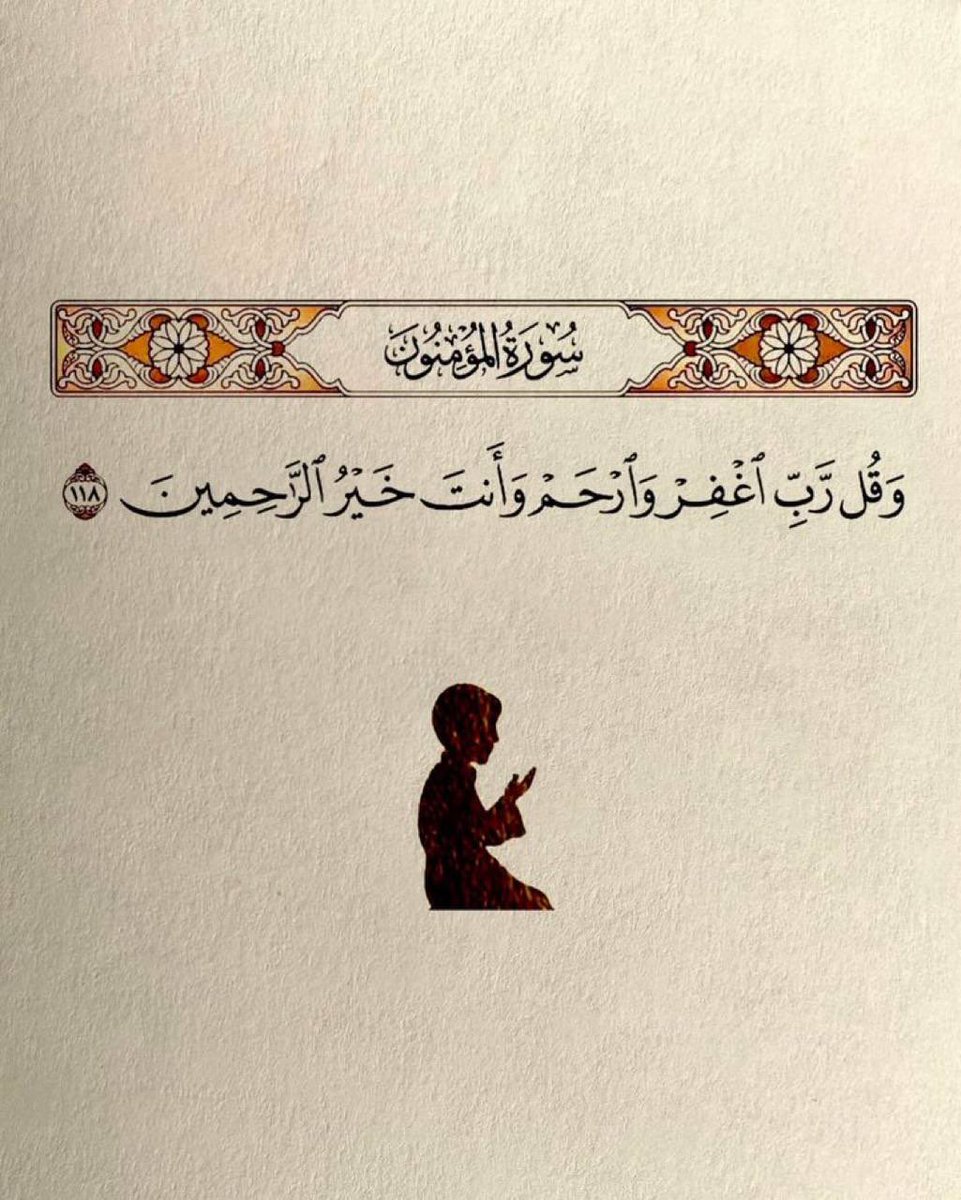 سُورَةُ المُؤْمِنُونَ
وَقُل رَّبِّ ٱغْفِرْ وَٱرْحَمْ وَأَنتَ خَيْرُ ٱلرَّٰحِمِينَ ١١٨